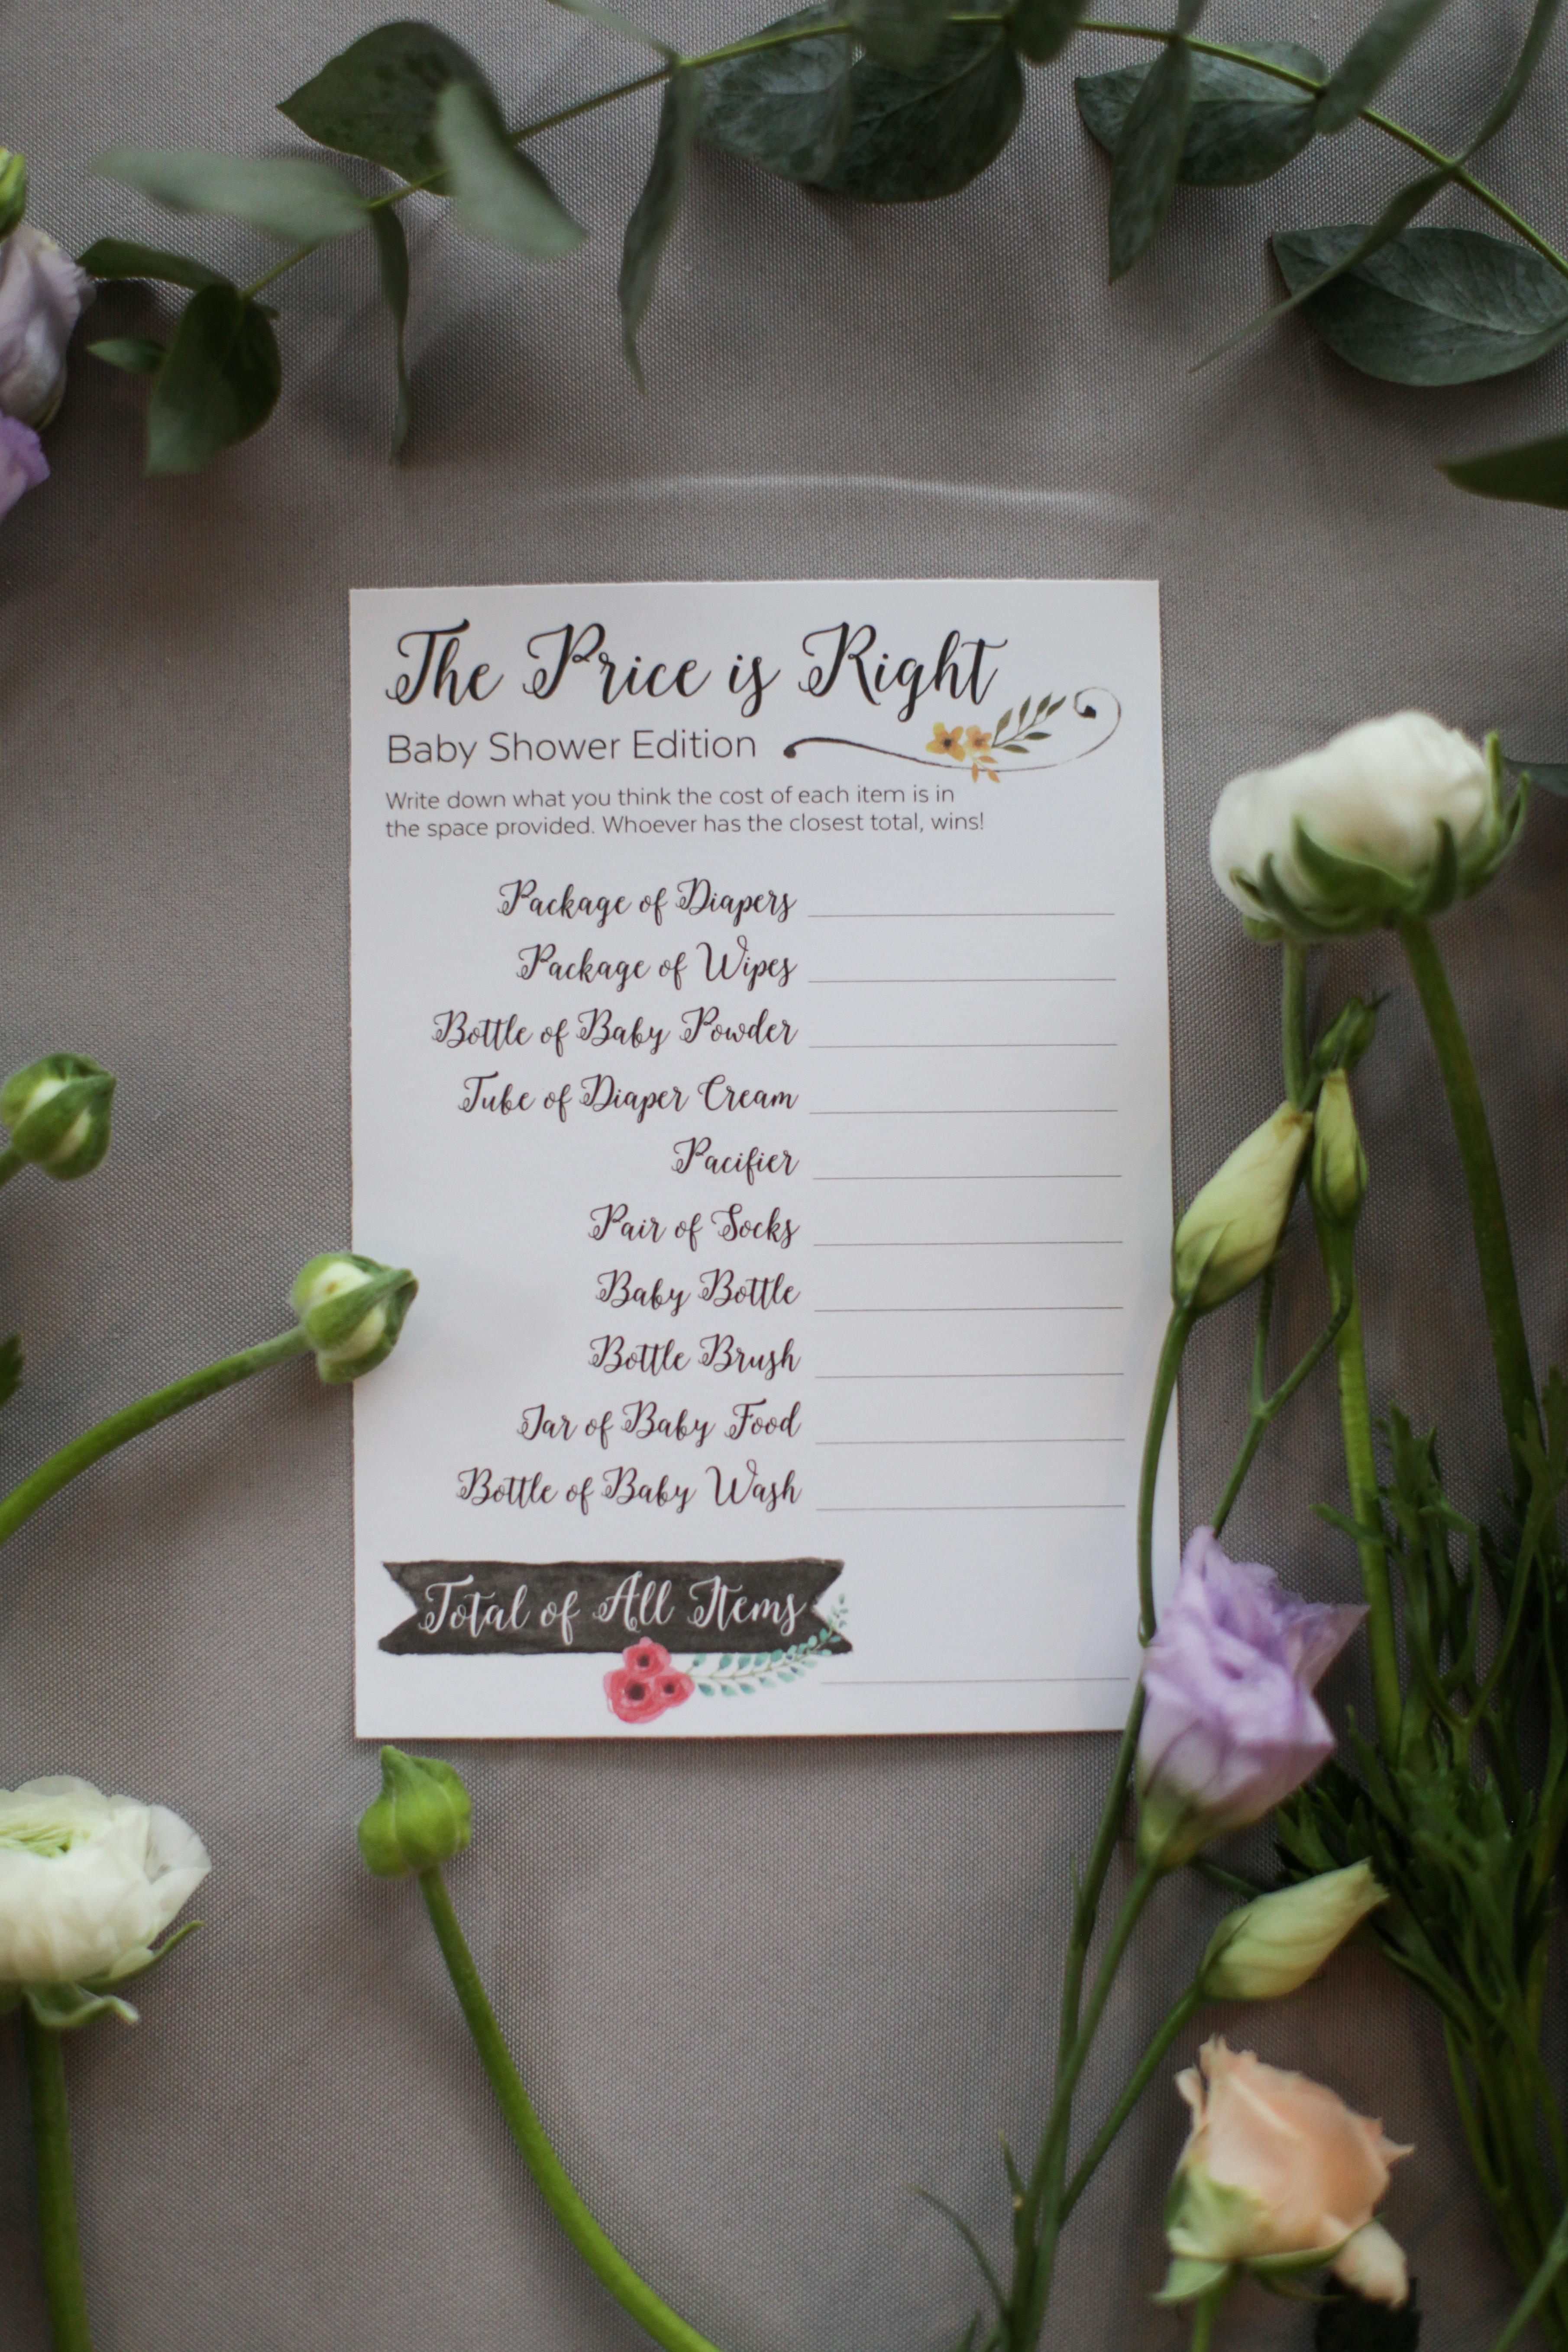 The Price is Right
Baby Shower Edition
Write down what you think the cost of each item is in
the space provided. Whoever has the closest total, wins!
Package of Diapers
Package of Wipes
Bottle of Baby Powder
Tube of Diaper Cream
Pacifier
Pair of Socks
Baby Bottle
Bottle Brush
Jar of Baby Food
Bottle of Baby Wash
Total of All Items